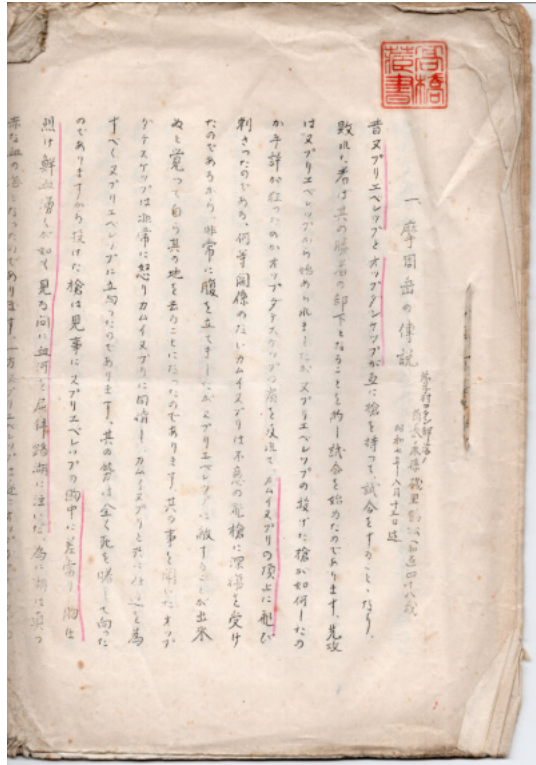 高橋蔵書
一 摩周岳の傳説
昭和七年八月十五日
昔ヌプリエペレップとオツプダテスケツプが互に槍を持つて試合をすることゝなり、
敗れた者は其の勝者の部下となることを約し試合を始めたのであります、先攻
はヌプリエペレツプから始められましたがヌプリエペレツプの投げた槍が如何したの
か手許が狂つたのかオツプダテスケツプの肩を カムイヌプリの頂上に飛び
刺さつたのである、何等関係のないカムイヌプリは不意の飛槍に深傷を受け
たのであるから、非常に腹を立てましたがヌプリエペレツプに敵することが出来
ぬと覚つて自ら其の地を去ることになつたのであります、其の事を聞いたオツプ
ダテスケツプは非常に怒りカムイヌプリに同情し、カムイヌプリの を為
すべくヌプリエペレツプに立向つたのであります、其の勢は全く死を賭して向つた
のでありますから投げた槍は見事にヌプリエペレツプの胸中に 胸は
烈け鮮血湧くが如く見る間に血河を屈斜路湖に注いだ 為に湖は